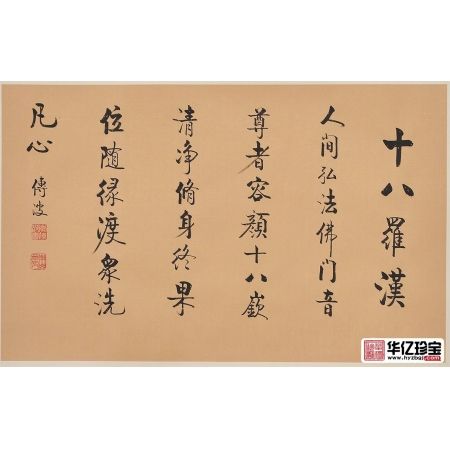 十八羅漢
人間弘法佛門音
尊者容顏十八嶔
清净脩身終果
位随緣渡衆洗
凡心
傅波
华亿珍宝
www.hyzbqj.com